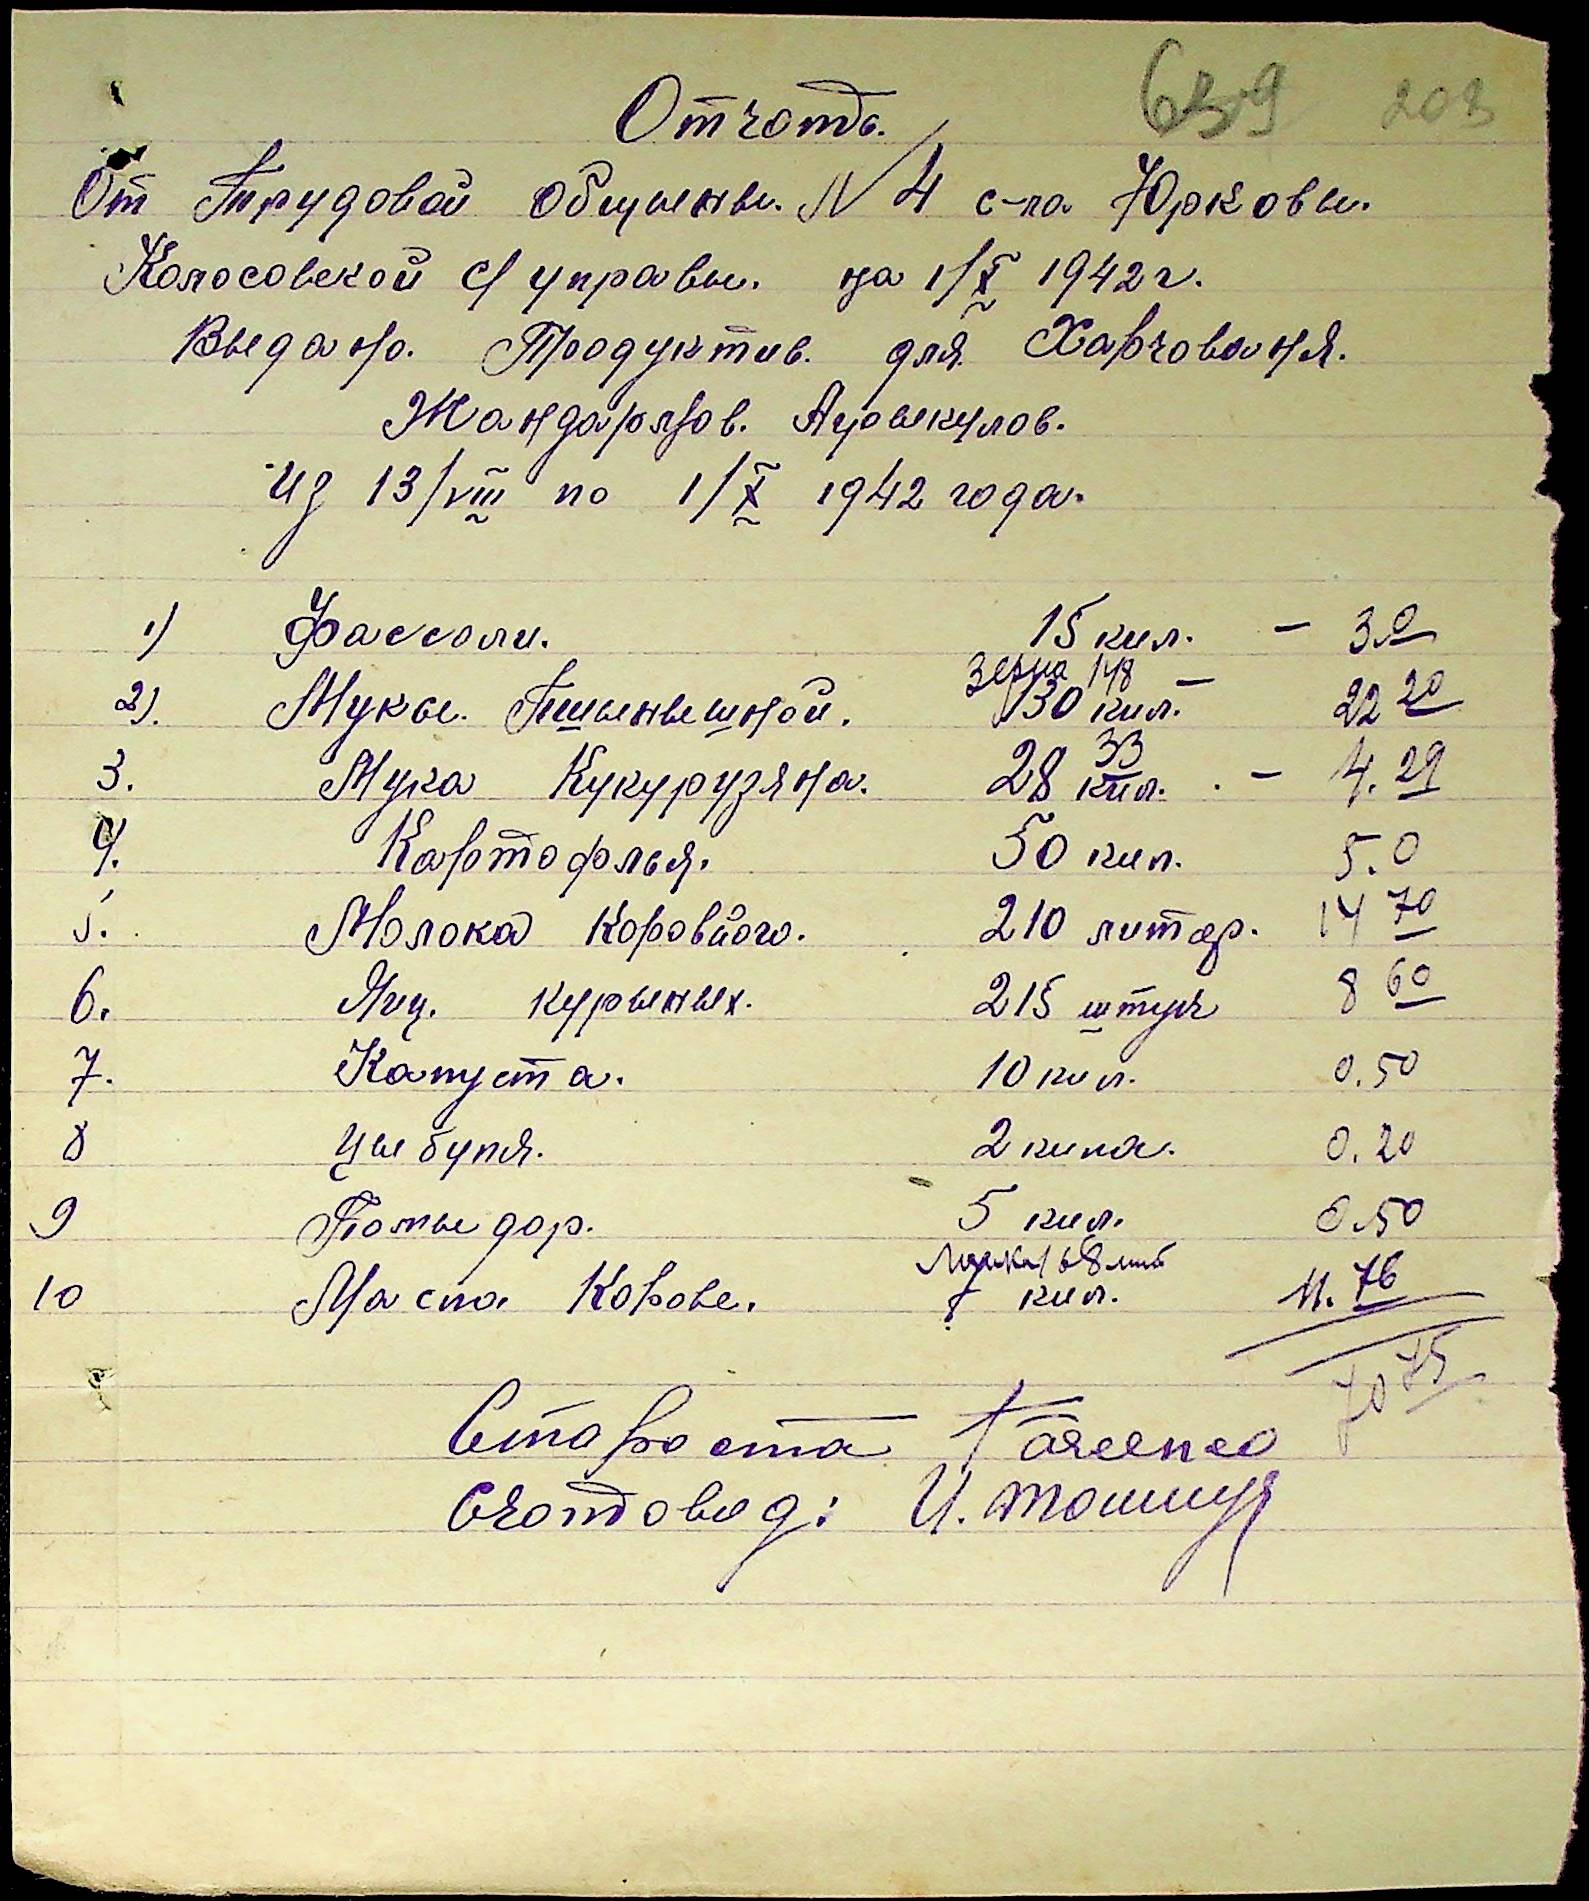 Отчотъ. 659 203
От Трудовой Общыны. N 4 с-ла Юрковы.
Колосовской С/управы. на 1/X 1942 г.
Выдано. Продуктив. для Харчованя.
Жандармов.
Из 13/VIII по 1/X 1942 года.
1) Фассоли. 15 кил. – 3.0
2). Мукы. Пшынышной. зерна 148 130 кил. – 22 20
3. Мука Кукурузяна. 33 28 кил. – 4.29
4. Картофлья. 50 кил. 5.0
5. Молока Коровйого. 210 литар. 14 70
6. Яиц. курыных. 215 штук 8 60
7. Капуста. 10 кил. 0.50
8 Цыбуля. 2 кила. 0.20
9 Помыдор. 5 кил. 0.50
10 Масла Корове. 168 лит кил. 11.76
70 75
Староста
Счотовыд: И.